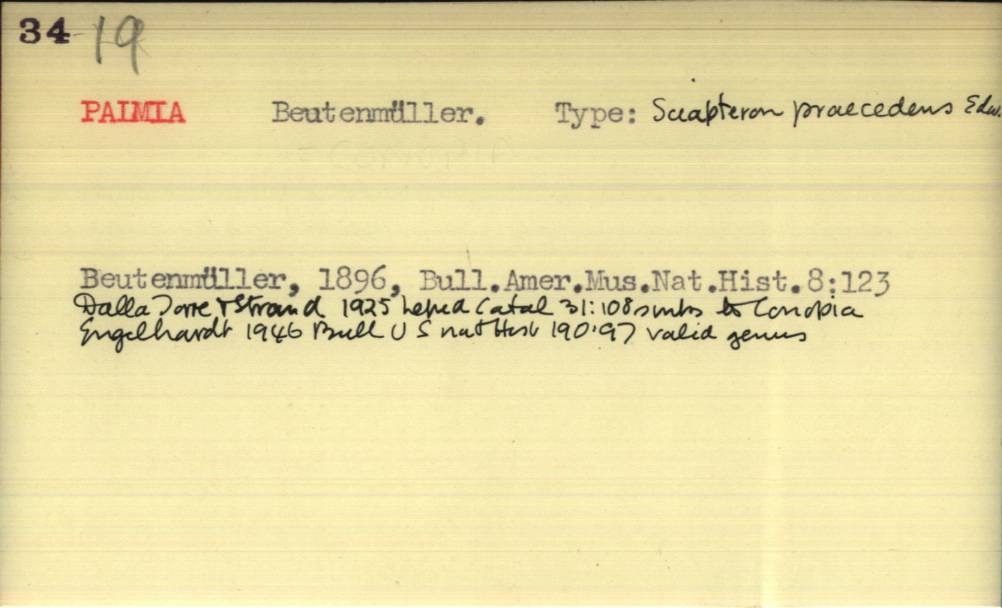 34 19
PALMIA Beutenmüller. Type: Sciapteron praecedens Edw.
Beutenmüller, 1896, Bull.Amer.Mus.Nat.Hist.8:123
Dalla Torre & Strand 1925 Lepid Catal 31:108 sinks to Conopia
Engelhardt 1946 Bull U S nat Hist 190:97 valid genus